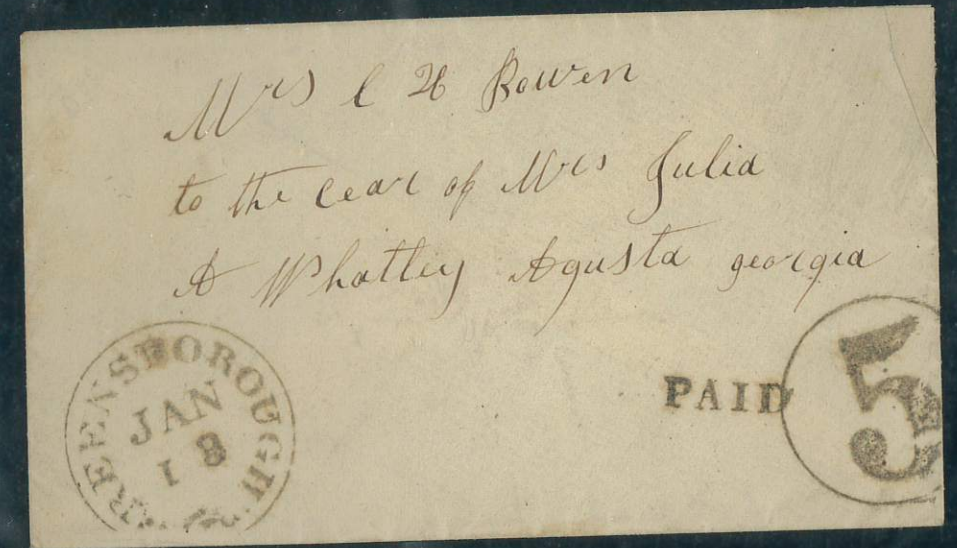 Mrs C H Bowen
to the cear of Mrs Julia
A Whatley Agusta georgia
REENSBOROUGH
JAN
18
PAID
5